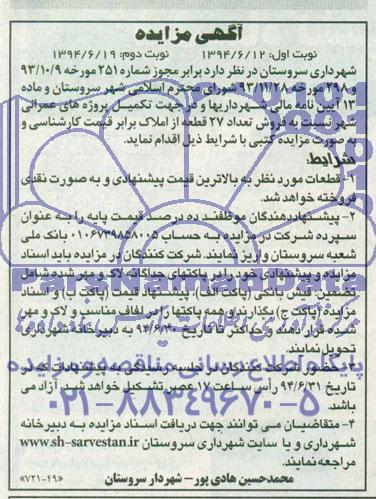 آگهی مزایده
نوبت اول: ۱۳۹۴/۶/۱۲ نوبت دوم: ۱۳۹۴/۶/۱۹
شهرداری سروستان در نظر دارد برابر مجوز شماره ۲۵۱ مورخه ۹۳/۱۰/۹
و ۲۹۸ مورخه ۹۳/۱۱/۲۸ شورای محترم اسلامی شهر سروستان و ماده
۱۳ آیین نامه مالی شهرداریها و در جهت تکمیل پروژه های عمرانی
شهر نسبت به فروش تعداد ۲۷ قطعه از املاک برابر قیمت کارشناسی و
به صورت مزایده کتبی با شرایط ذیل اقدام نماید.
شرایط:
۱- قطعات مورد نظر به بالاترین قیمت پیشنهادی و به صورت نقدی
فروخته خواهد شد.
۲- پیشنهاددهندگان موظفند ده درصد قیمت پایه را به عنوان
سپرده شرکت در مزایده به حساب ۰۱۰۶۷۳۹۸۵۸۰۰۵ بانک ملی
شعبه سروستان واریز نمایند. شرکت کنندگان در مزایده باید اسناد
مزایده و پیشنهادی خود را در پاکتهای جداگانه لاک و مهر شده شامل
تضمین فیش بانکی (پاکت الف)، پیشنهاد قیمت (پاکت ب) و اسناد
مزایده (پاکت ج) بگذارند و همه پاکتها را در لفاف مناسب و لاک و مهر
شده قرار دهند و حداکثر تا تاریخ ۹۴/۶/۳۰ به دبیرخانه شهرداری
تحویل نمایند.
۳- حضور شرکت کنندگان در جلسه رسیدگی به پیشنهادات که در
تاریخ ۹۴/۶/۳۱ رأس ساعت ۱۷ عصر تشکیل خواهد شد آزاد می
باشد.
۴- متقاضیان می توانند جهت دریافت اسناد مزایده به دبیرخانه
شهرداری و یا سایت شهرداری سروستان www.sh-sarvestan.ir
مراجعه نمایند.
محمدحسین هادی پور – شهردار سروستان
«۷۲۱-۴۹»
ParsNamadData
پایگاه اطلاع رسانی مناقصه و مزایده
۰۲۱-۸۸۳۴۹۶۷۰-۵